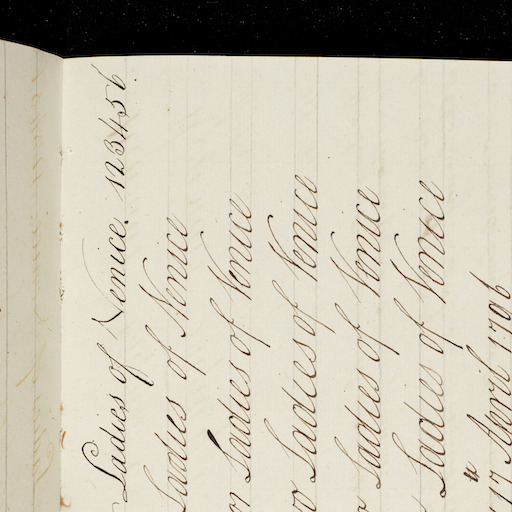 Ladies of Venice. 123456
Ladies of Venice
Ladies of Venice
Ladies of Venice
Ladies of Venice
Ladies of Venice
17 April 1706